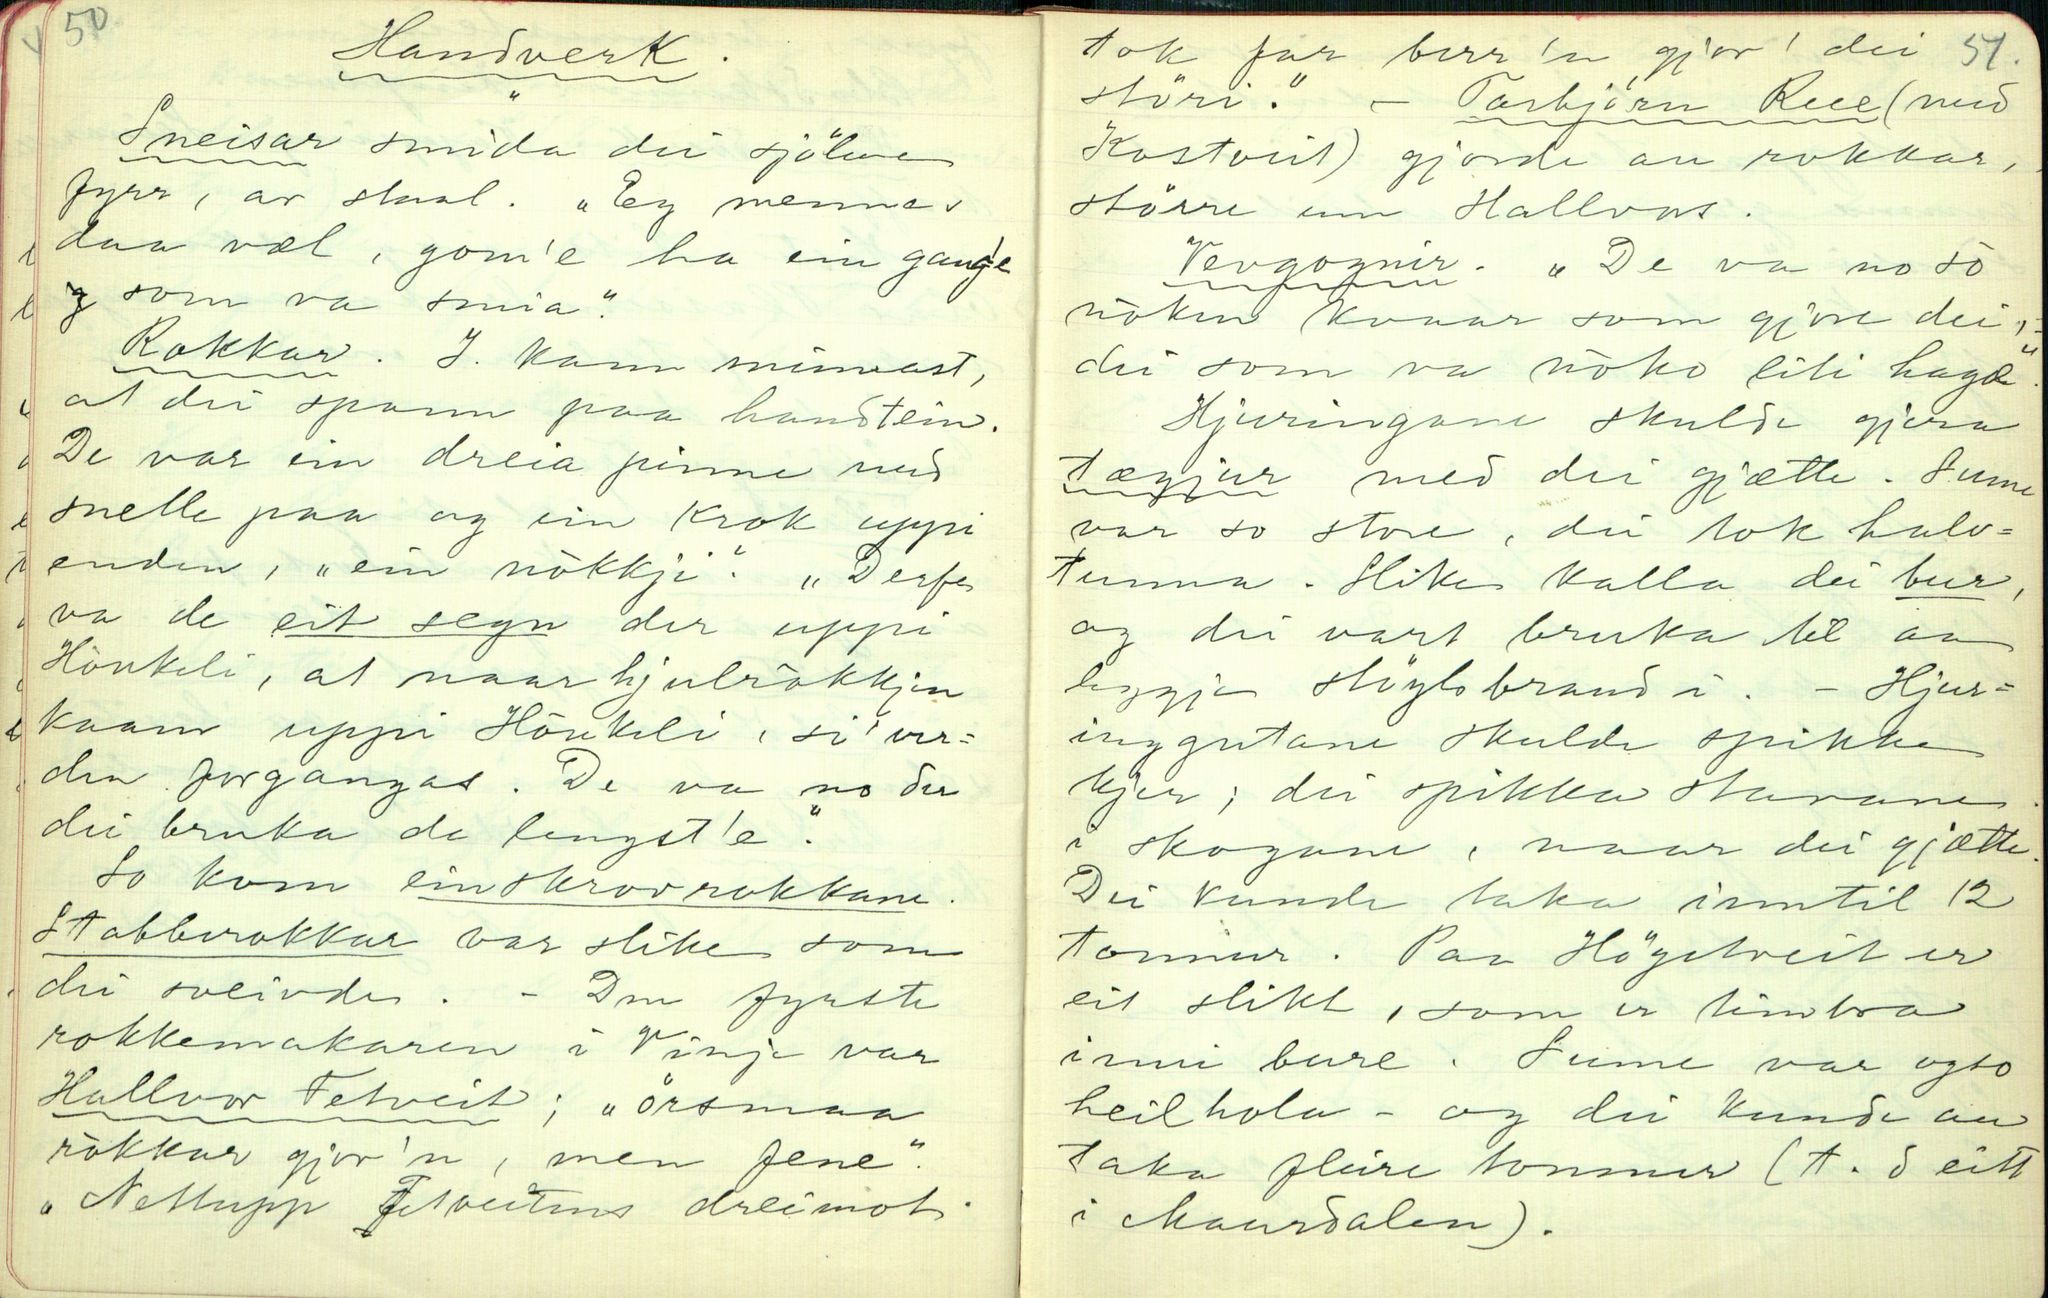 50
Handverk.
Sneisar smida dei sjölve
fyrr, av staal. „Eg mennas
daa væl, gom'e ha ein gang'e
som va smia".
Rokkar. J. kann minnast,
at dei spann paa handtein.
De var ein dreia pinne med
snelle paa og ein krok uppi
enden, „ein nòkkji". „Derfe
va de eit segn der uppi
Hòukeli, at naar hjulròkkjen
kaam uppi Hòukeli, si' ver=
den forgangas. De va no der
dei bruka da lengst'e".
So kom einskrovrokkane.
Stabberokkar var slike som
dei sveivde. - Den fyrste
rokkemakaren i Vinje var
Hallvor Fetveit; „örsmaa
ròkkar gjor'n, men fene".
„Nettupp Fetveitens dreimot
51.
tok far berr'n gjor' dei
störi". - Torbjörn Ree (med
Kostveit) gjorde au rokkar,
större enn Hallvors.
Vevgognir. „De va no so
nòken kvaar som gjore dei,-
dei som va nòko liti hage".
Hjuringane skulde gjera
tægjur med dei gjætte. Sume
var so store, dei tok halv=
tunna. Slike kalla dei bur,
og dei vart bruka til aa
leggje stöylsbraud i. - Hjur=
inggutane skulde spikke
kjer; dei spikka stavane
i skogane, naar dei gjætte.
Dei kunde taka inntil 12
tonnur. Paa Högetveit er
eit slikt, som er timbra
inni bure. Sume var ogso
heilhola - og dei kunde au
taka fleire tonnur (t. d eitt
i Maurdalen).